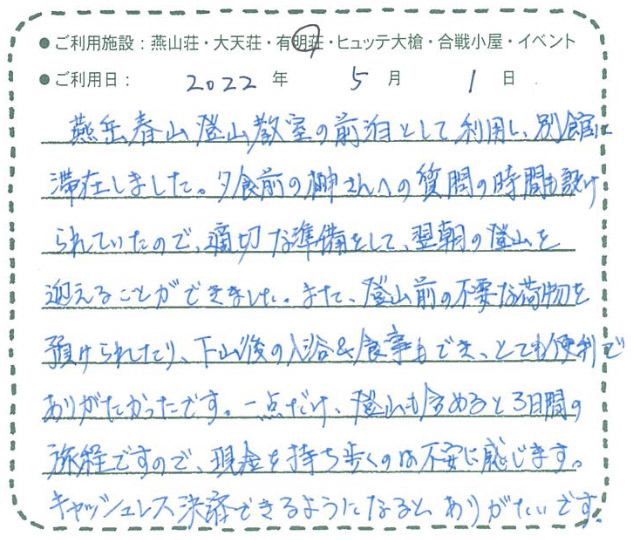 ● ご利用施設：燕山荘・大天荘・有明荘・ヒュッテ大槍・合戦小屋・イベント
● ご利用日： 2022 年 5 月 1 日
燕岳春山登山教室の前泊として利用し、別館に
滞在しました。夕食前の榊さんへの質問の時間も設け
られていたので、適切な準備をして、翌朝の登山を
迎えることができました。また、登山前の不要な荷物を
預けられたり、下山後の入浴&食事もでき、とても便利で
ありがたかったです。一点だけ、登山も含めると3日間の
旅程ですので、現金を持ち歩くのは不安に感じます。
キャッシュレス決済できるようになると、ありがたいです。